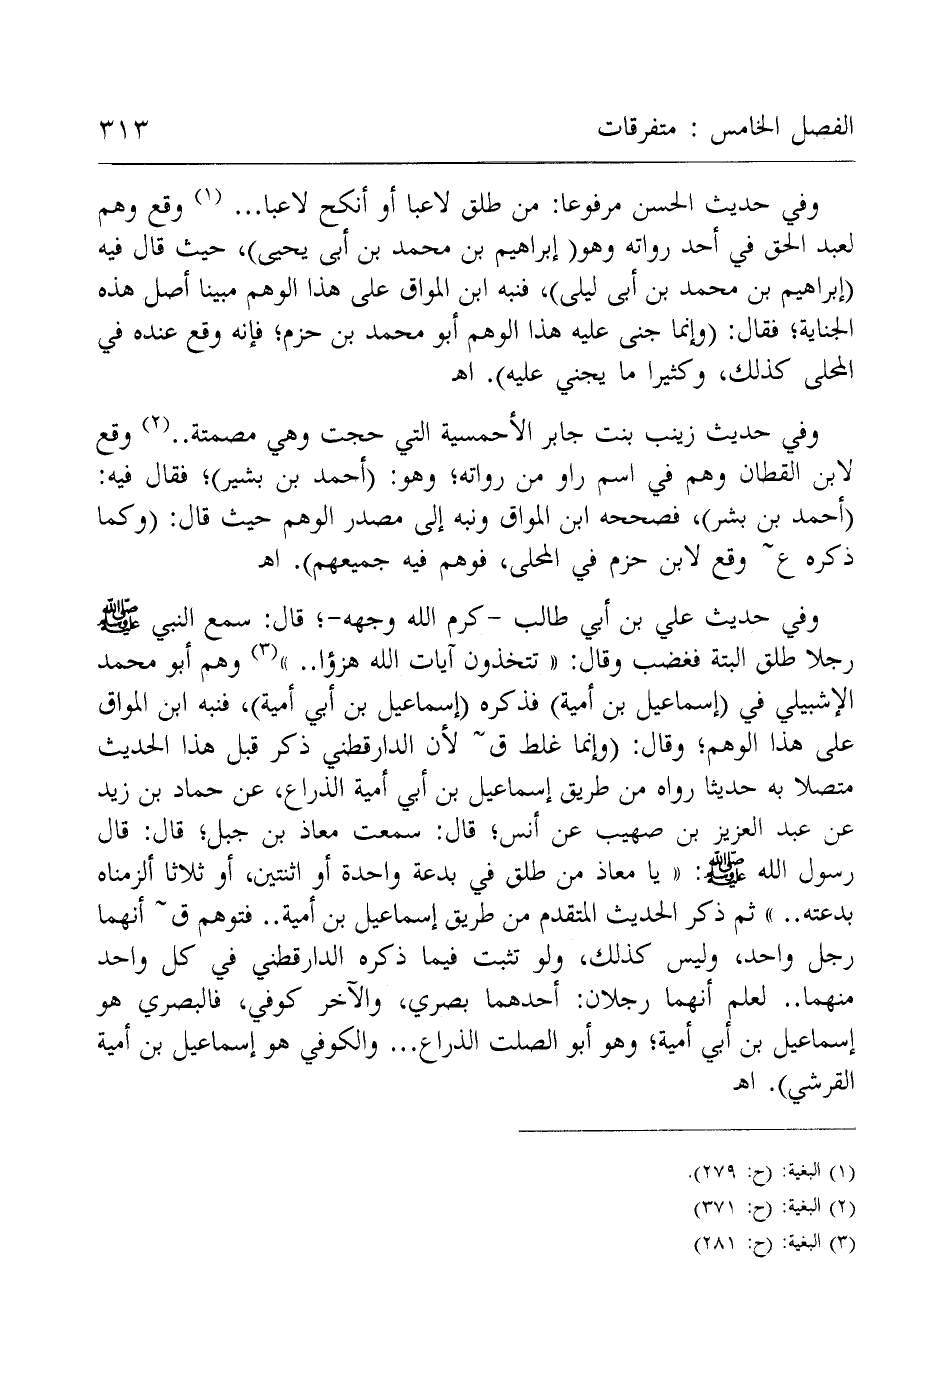 الفصل الخامس : متفرقات ٣١٣
وفي حديث الحسن مرفوعا: من طلق لاعبا أو أنكح لاعبا... (١) وقع وهم
لعبد الحق في أحد رواته وهو( إبراهيم بن محمد بن أبى يحيى)، حيث قال فيه
(إبراهيم بن محمد بن أبى ليلى)، فنبه ابن المواق على هذا الوهم مبينا أصل هذه
الجناية؛ فقال: (وإنما جنى عليه هذا الوهم أبو محمد بن حزم؛ فإنه وقع عنده في
المحلى كذلك، وكثيرا ما يجني عليه). اهـ
وفي حديث زينب بنت جابر الأحمسية التي حجت وهي مصمتة..(٢) وقع
لابن القطان وهم في اسم راو من رواته؛ وهو: (أحمد بن بشير)؛ فقال فيه:
(أحمد بن بشر)، فصححه ابن المواق ونبه إلى مصدر الوهم حيث قال: (وكما
ذكره ع~ وقع لابن حزم في المحلى، فوهم فيه جميعهم). اهـ
وفي حديث علي بن أبي طالب -كرم الله وجهه-؛ قال: سمع النبي ﷺ
رجلا طلق البتة فغضب وقال: « تتخذون آيات الله هزؤا.. »(٣) وهم أبو محمد
الإشبيلي في (إسماعيل بن أمية) فذكره (إسماعيل بن أبي أمية)، فنبه ابن المواق
على هذا الوهم؛ وقال: (وإنما غلط ق~ لأن الدارقطني ذكر قبل هذا الحديث
متصلا به حديثا رواه من طريق إسماعيل بن أبي أمية الذراع، عن حماد بن زيد
عن عبد العزيز بن صهيب عن أنس؛ قال: سمعت معاذ بن جبل؛ قال: قال
رسول الله ﷺ: « يا معاذ من طلق في بدعة واحدة أو اثنتين، أو ثلاثا ألزمناه
بدعته.. » ثم ذكر الحديث المتقدم من طريق إسماعيل بن أمية.. فتوهم ق~ أنهما
رجل واحد، وليس كذلك، ولو تثبت فيما ذكره الدارقطني في كل واحد
منهما.. لعلم أنهما رجلان: أحدهما بصري، والآخر كوفي، فالبصري هو
إسماعيل بن أبي أمية؛ وهو أبو الصلت الذراع... والكوفي هو إسماعيل بن أمية
القرشي). اهـ
(١) البغية: (ح: ٢٧٩).
(٢) البغية: (ح: ٣٧١)
(٣) البغية: (ح: ٢٨١)